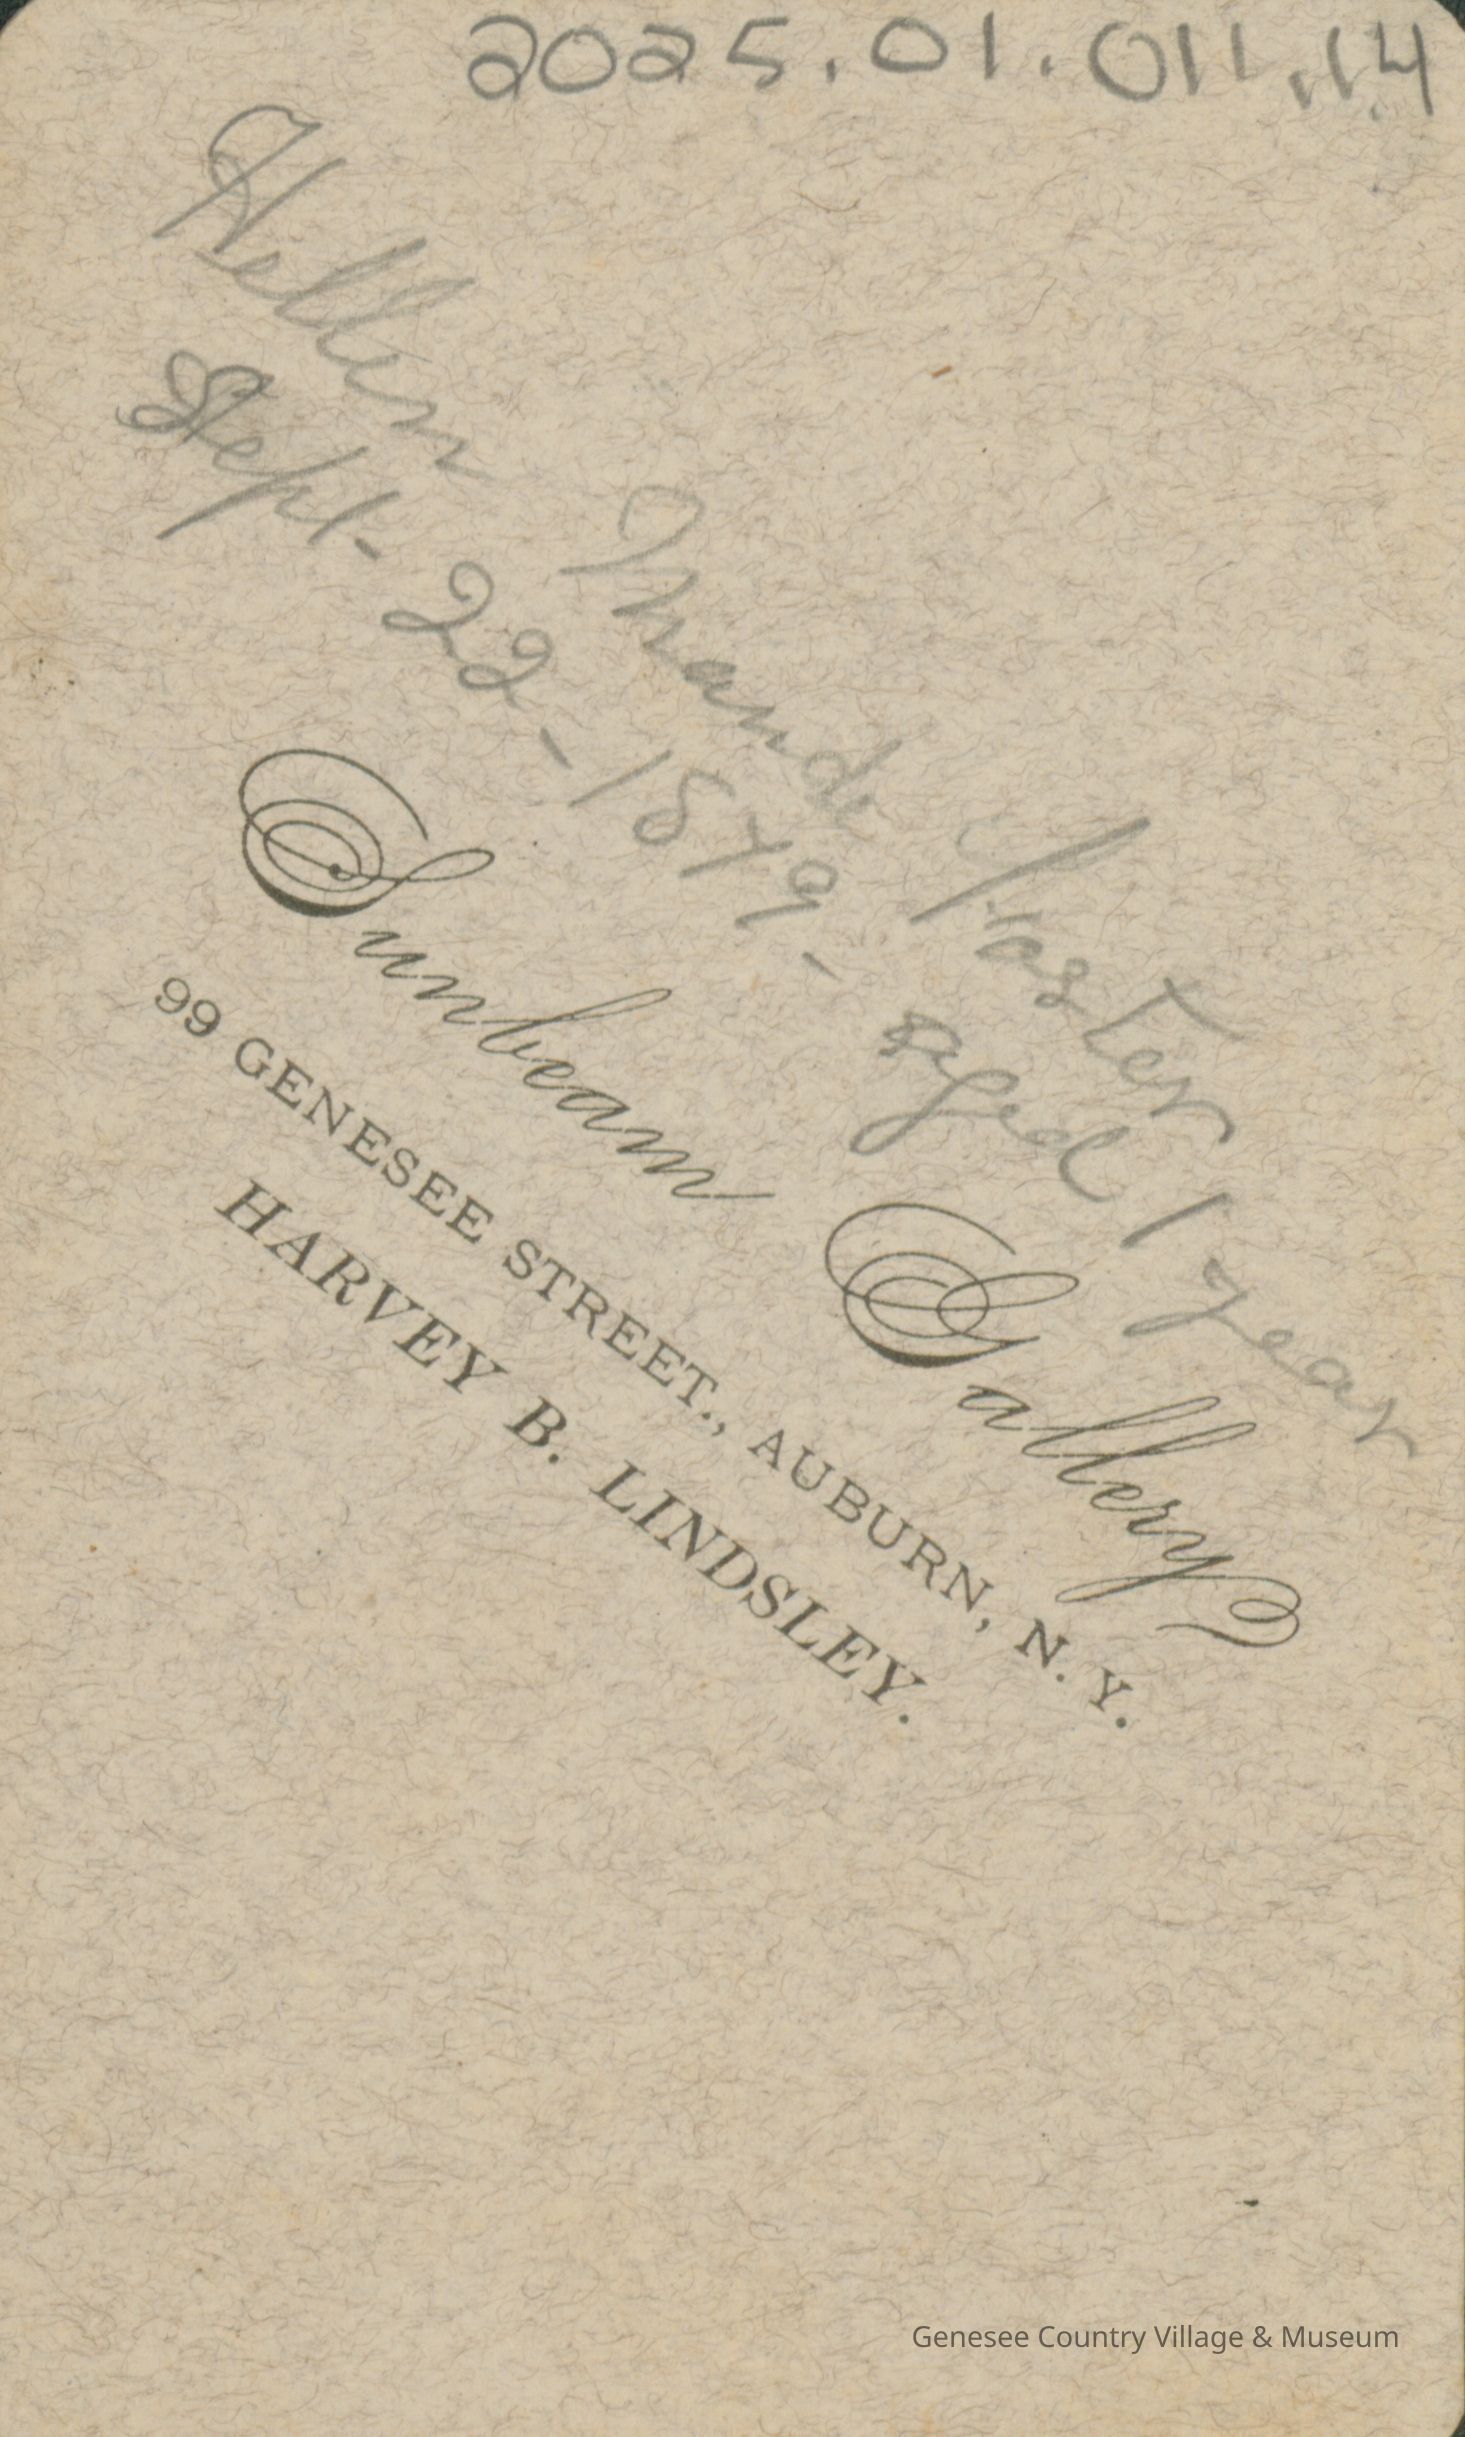 2025.01.011.14
Hellen Maude Foster
Sept- 22-1879- aged 1 year
Sunbeam Gallery
99 GENESEE STREET., AUBURN, N. Y.
HARVEY B. LINDSLEY.
Genesee Country Village & Museum